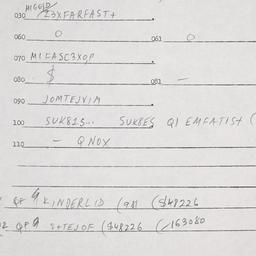 HIGGID
030 23XFARFAST+
060 O 061 O
070 MIFASC3XOP
080 $ 081 -
090 JOMTEJVIM
100 SUK815... SUK8ES QI EMFATIST (
110 - QNOX
9 KINDERLID (911 ($48226
2 OF 9 S+TEJOF ($48226 (/163080